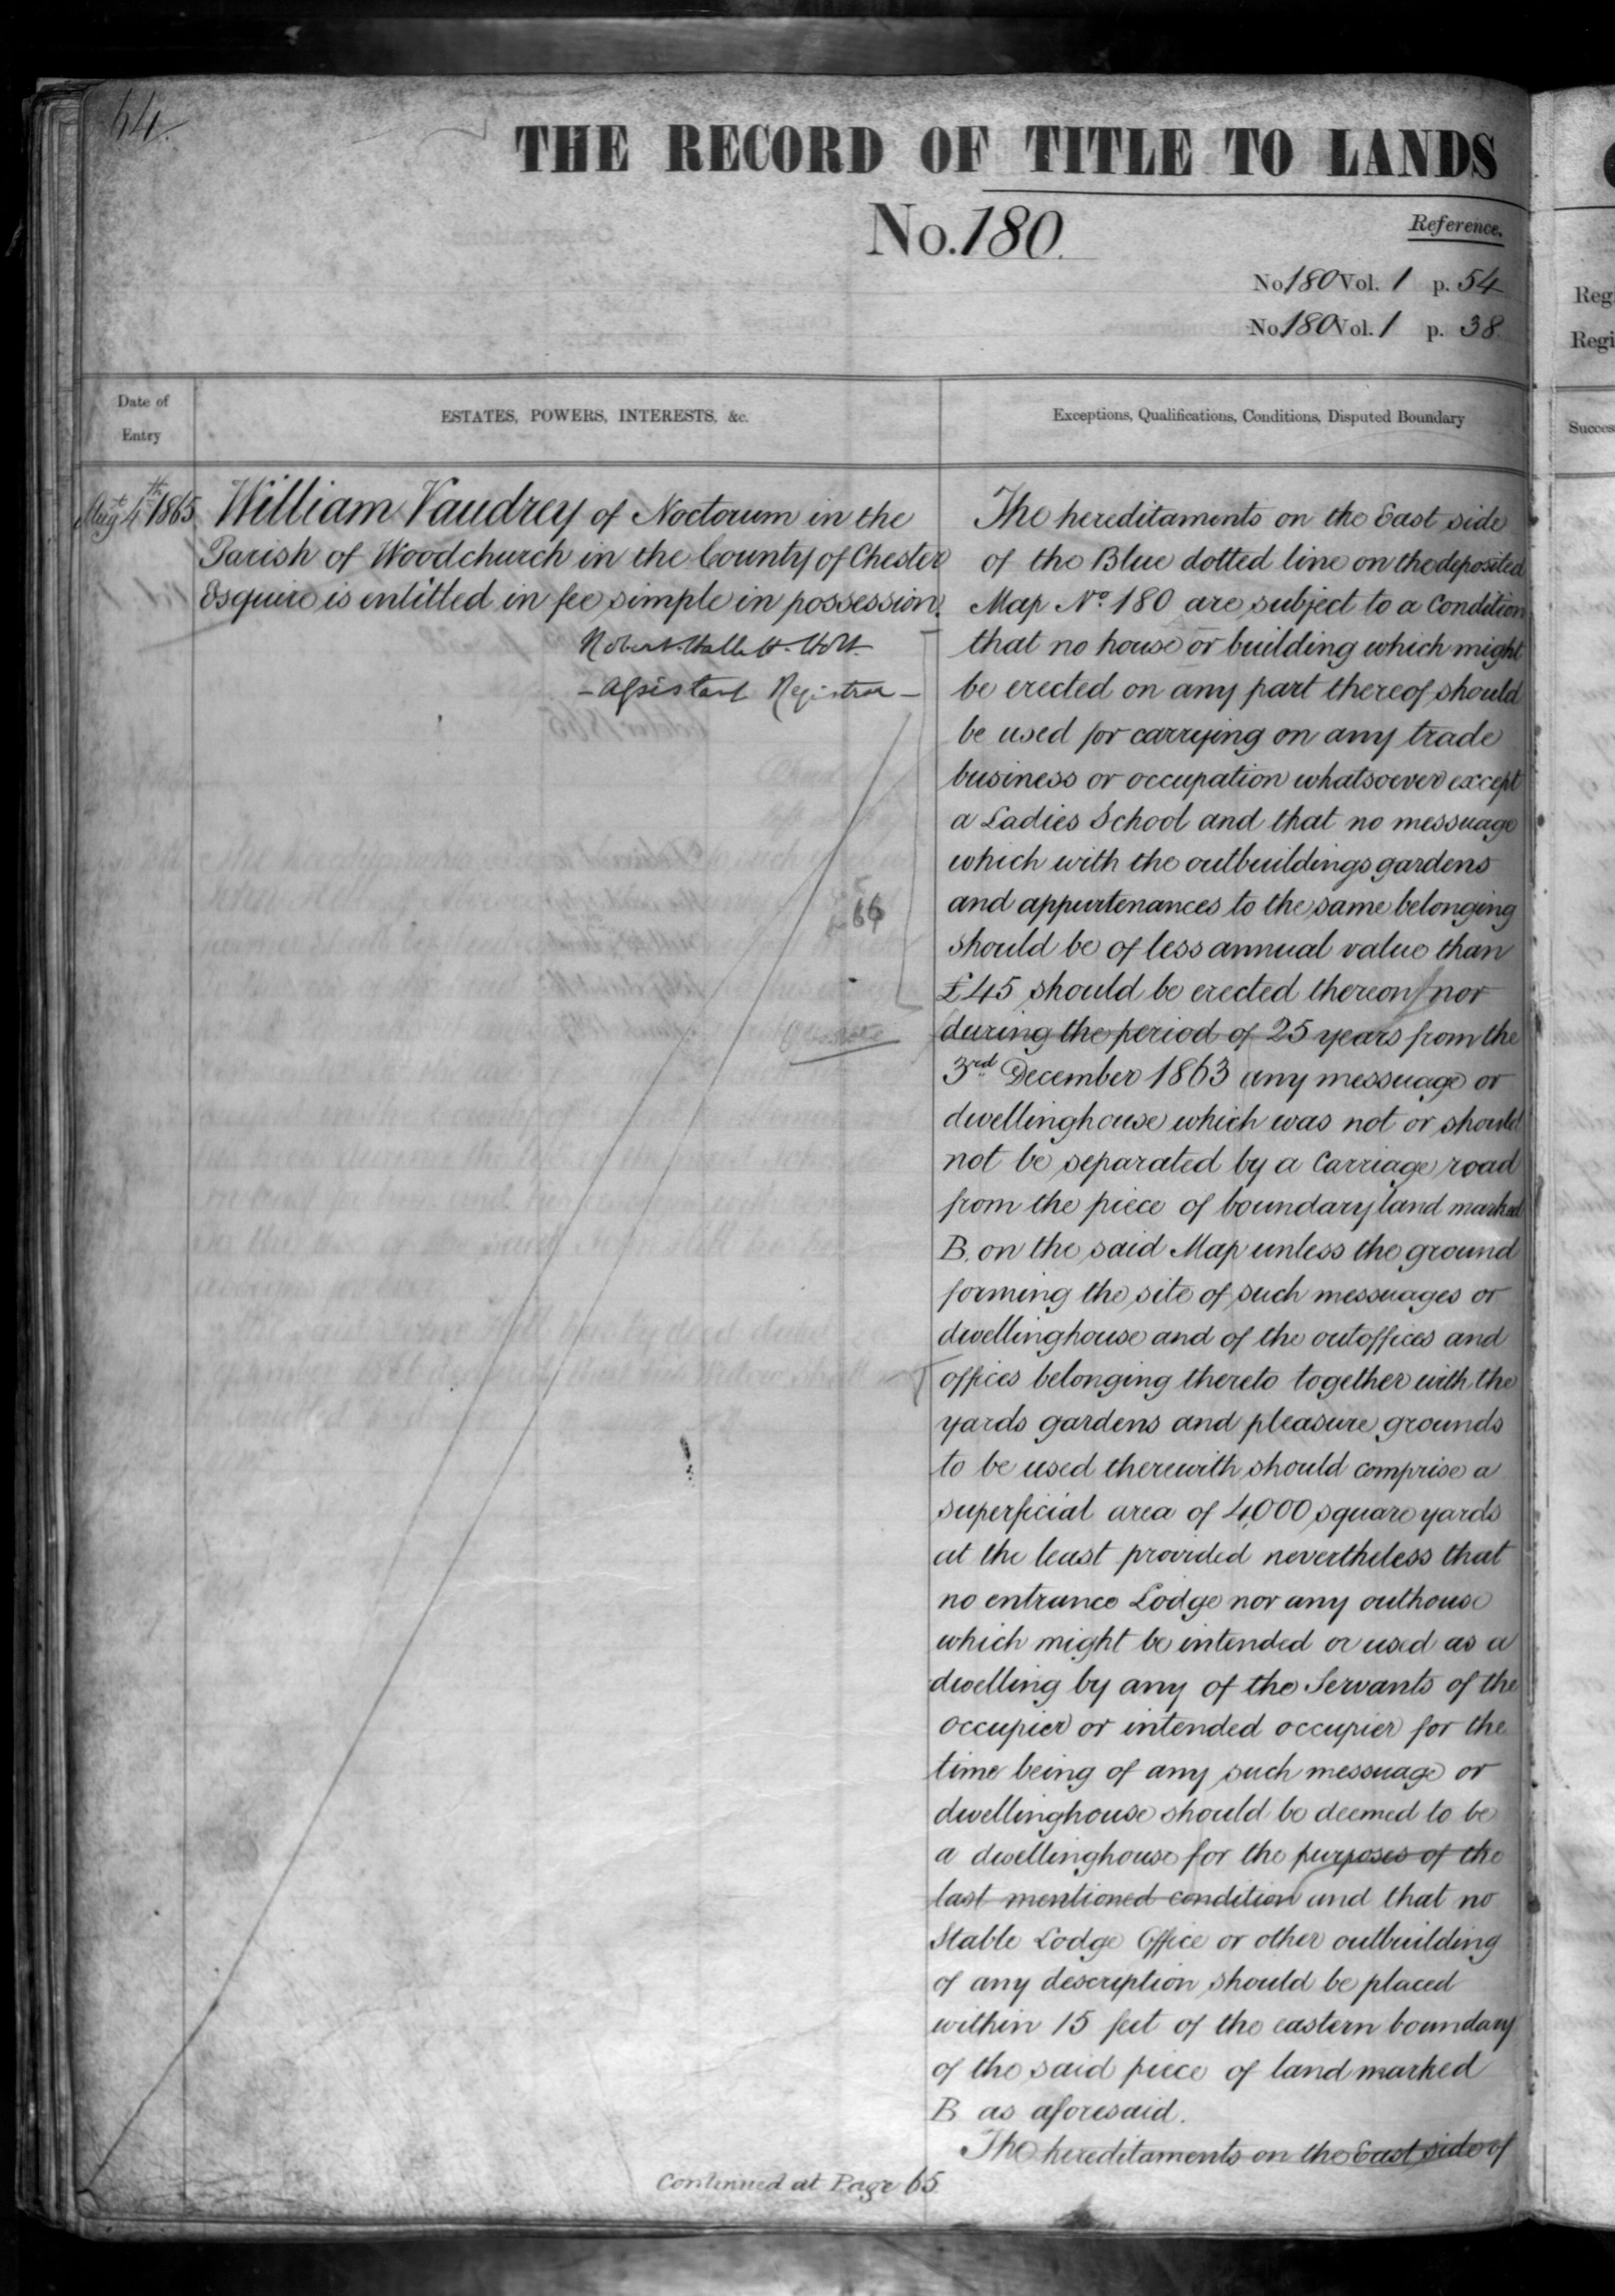 64.
THE RECORD OF TITLE TO LANDS
No. 180.
Reference.
No 180 Vol. 1 p. 54
No 180 Vol. 1 p. 38
Reg
Regi
Date of
Entry
ESTATES, POWERS, INTERESTS, &c.
Exceptions, Qualifications, Conditions, Disputed Boundary
Succes
Augt 4th 1865
William Vaudrey of Noctorum in the
Parish of Woodchurch in the County of Chester
Esquire is entitled in fee simple in possession.
Robert Hallett Holt
- Assistant Registrar -
66
The hereditaments on the East side
of the Blue dotted line on the deposited
Map No. 180 are subject to a Condition
that no house or building which might
be erected on any part thereof should
be used for carrying on any trade
business or occupation whatsoever except
a Ladies School and that no messuage
which with the outbuildings gardens
and appurtenances to the same belonging
should be of less annual value than
£45 should be erected thereon nor
during the period of 25 years from the
3rd December 1863 any messuage or
dwellinghouse which was not or should
not be separated by a Carriage road
from the piece of boundary land marked
B. on the said Map unless the ground
forming the site of such messuages or
dwellinghouse and of the outoffices and
offices belonging thereto together with the
yards gardens and pleasure grounds
to be used therewith should comprise a
superficial area of 4,000 square yards
at the least provided nevertheless that
no entrance Lodge nor any outhouse
which might be intended or used as a
dwelling by any of the Servants of the
occupier or intended occupier for the
time being of any such messuage or
dwellinghouse should be deemed to be
a dwellinghouse for the purposes of the
last mentioned condition and that no
Stable Lodge Office or other outbuilding
of any description should be placed
within 15 feet of the eastern boundary
of the said piece of land marked
B as aforesaid.
The hereditaments on the East side of
Continued at Page 65